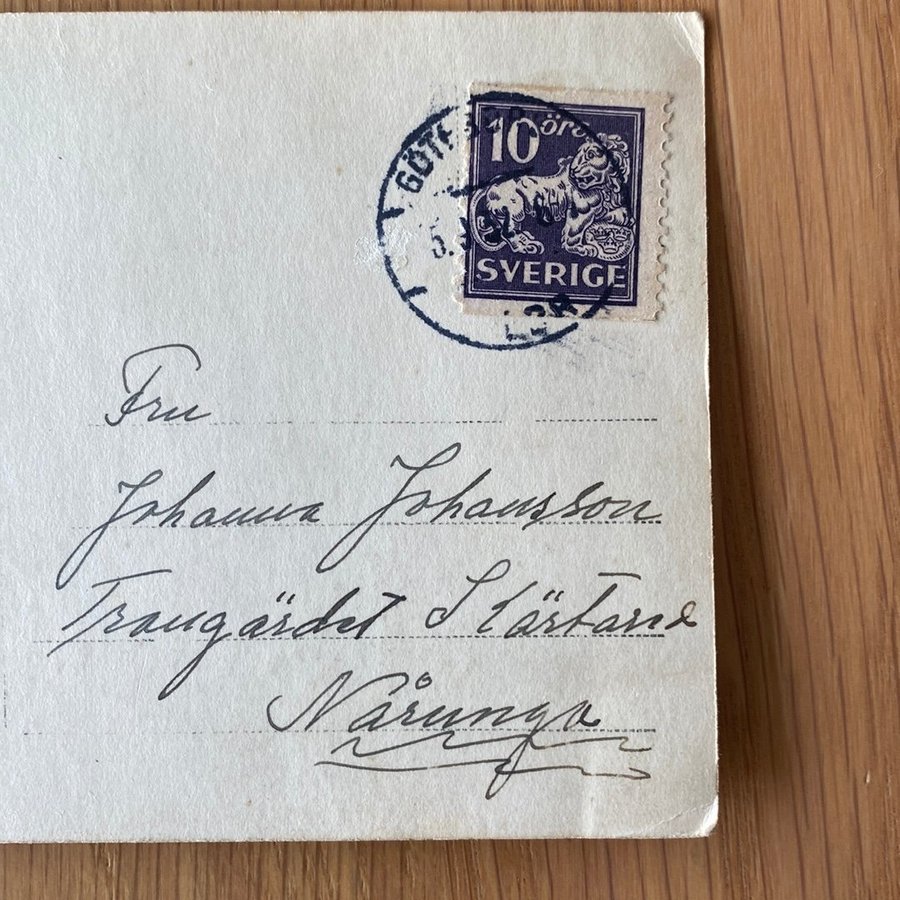 10 öre
SVERIGE
GÖTEBORG
Fru
Johanna Johansson
Trangärdet Skärtorp
Nårunga